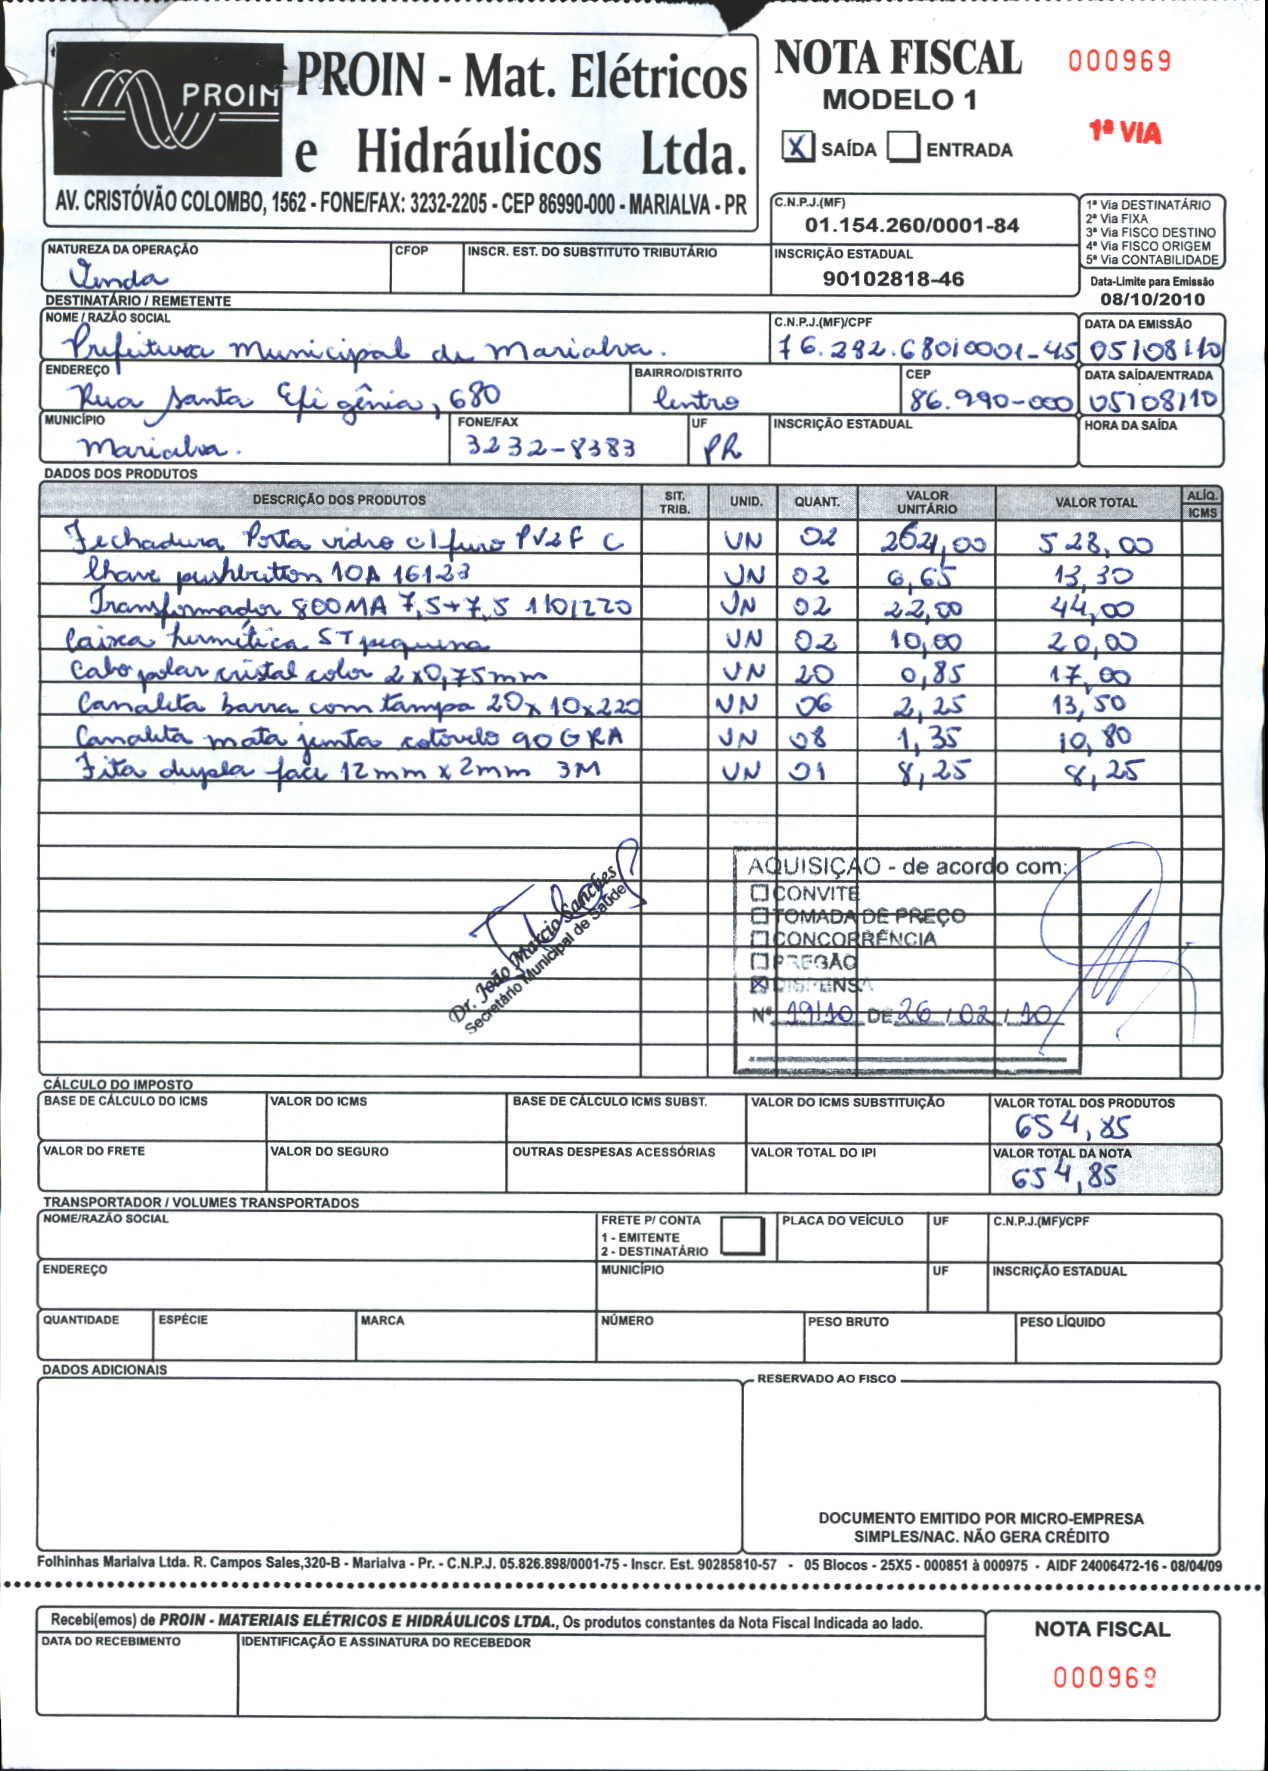 PROIN
PROIN - Mat. Elétricos
e Hidráulicos Ltda.
AV. CRISTÓVÃO COLOMBO, 1562 - FONE/FAX: 3232-2205 - CEP 86990-000 - MARIALVA - PR
NOTA FISCAL 000969
MODELO 1
1ª VIA
X SAÍDA ENTRADA
C.N.P.J.(MF)
01.154.260/0001-84
INSCRIÇÃO ESTADUAL
90102818-46
1ª Via DESTINATÁRIO
2ª Via FIXA
3ª Via FISCO DESTINO
4ª Via FISCO ORIGEM
5ª Via CONTABILIDADE
Data-Limite para Emissão
08/10/2010
NATUREZA DA OPERAÇÃO CFOP INSCR. EST. DO SUBSTITUTO TRIBUTÁRIO
Venda
DESTINATÁRIO / REMETENTE
NOME / RAZÃO SOCIAL C.N.P.J.(MF)/CPF DATA DA EMISSÃO
Prefeitura Municipal de Marialva. 76.282.680/0001-45 05/08/10
ENDEREÇO BAIRRO/DISTRITO CEP DATA SAÍDA/ENTRADA
Rua Santa Efigênia, 680 Centro 86.990-000 05/08/10
MUNICÍPIO FONE/FAX UF INSCRIÇÃO ESTADUAL HORA DA SAÍDA
Marialva. 3232-8383 PR
DADOS DOS PRODUTOS
DESCRIÇÃO DOS PRODUTOS SIT. TRIB. UNID. QUANT. VALOR UNITÁRIO VALOR TOTAL ALÍQ. ICMS
Fechadura Porta vidro c/ furo PV2F C UN 02 264,00 528,00
Chave pushbutton 10A 16123 UN 02 6,65 13,30
Transformador 800MA 7,5+7,5 110/220 UN 02 22,00 44,00
Caixa hermética ST pequena UN 02 10,00 20,00
Cabo polar cristal color 2x0,75mm UN 20 0,85 17,00
Canaleta barra com tampa 20x10x220 UN 06 2,25 13,50
Canaleta mata junta cotovelo 90GRA UN 08 1,35 10,80
Fita dupla face 12mm x 2mm 3M UN 01 8,25 8,25
Dr. João Marcio Sanches
Secretário Municipal de Saúde
AQUISIÇÃO - de acordo com:
CONVITE
TOMADA DE PREÇO
CONCORRÊNCIA
PREGÃO
X DISPENSA
Nº 19/10 DE 26 / 02 / 10
CÁLCULO DO IMPOSTO
BASE DE CÁLCULO DO ICMS VALOR DO ICMS BASE DE CÁLCULO ICMS SUBST. VALOR DO ICMS SUBSTITUIÇÃO VALOR TOTAL DOS PRODUTOS
654,85
VALOR DO FRETE VALOR DO SEGURO OUTRAS DESPESAS ACESSÓRIAS VALOR TOTAL DO IPI VALOR TOTAL DA NOTA
654,85
TRANSPORTADOR / VOLUMES TRANSPORTADOS
NOME/RAZÃO SOCIAL FRETE P/ CONTA PLACA DO VEÍCULO UF C.N.P.J.(MF)/CPF
1 - EMITENTE
2 - DESTINATÁRIO
ENDEREÇO MUNICÍPIO UF INSCRIÇÃO ESTADUAL
QUANTIDADE ESPÉCIE MARCA NÚMERO PESO BRUTO PESO LÍQUIDO
DADOS ADICIONAIS
RESERVADO AO FISCO
DOCUMENTO EMITIDO POR MICRO-EMPRESA
SIMPLES/NAC. NÃO GERA CRÉDITO
Folhinhas Marialva Ltda. R. Campos Sales,320-B - Marialva - Pr. - C.N.P.J. 05.826.898/0001-75 - Inscr. Est. 90285810-57 - 05 Blocos - 25X5 - 000851 à 000975 - AIDF 24006472-16 - 08/04/09
Recebi(emos) de PROIN - MATERIAIS ELÉTRICOS E HIDRÁULICOS LTDA., Os produtos constantes da Nota Fiscal Indicada ao lado.
DATA DO RECEBIMENTO IDENTIFICAÇÃO E ASSINATURA DO RECEBEDOR
NOTA FISCAL
000969